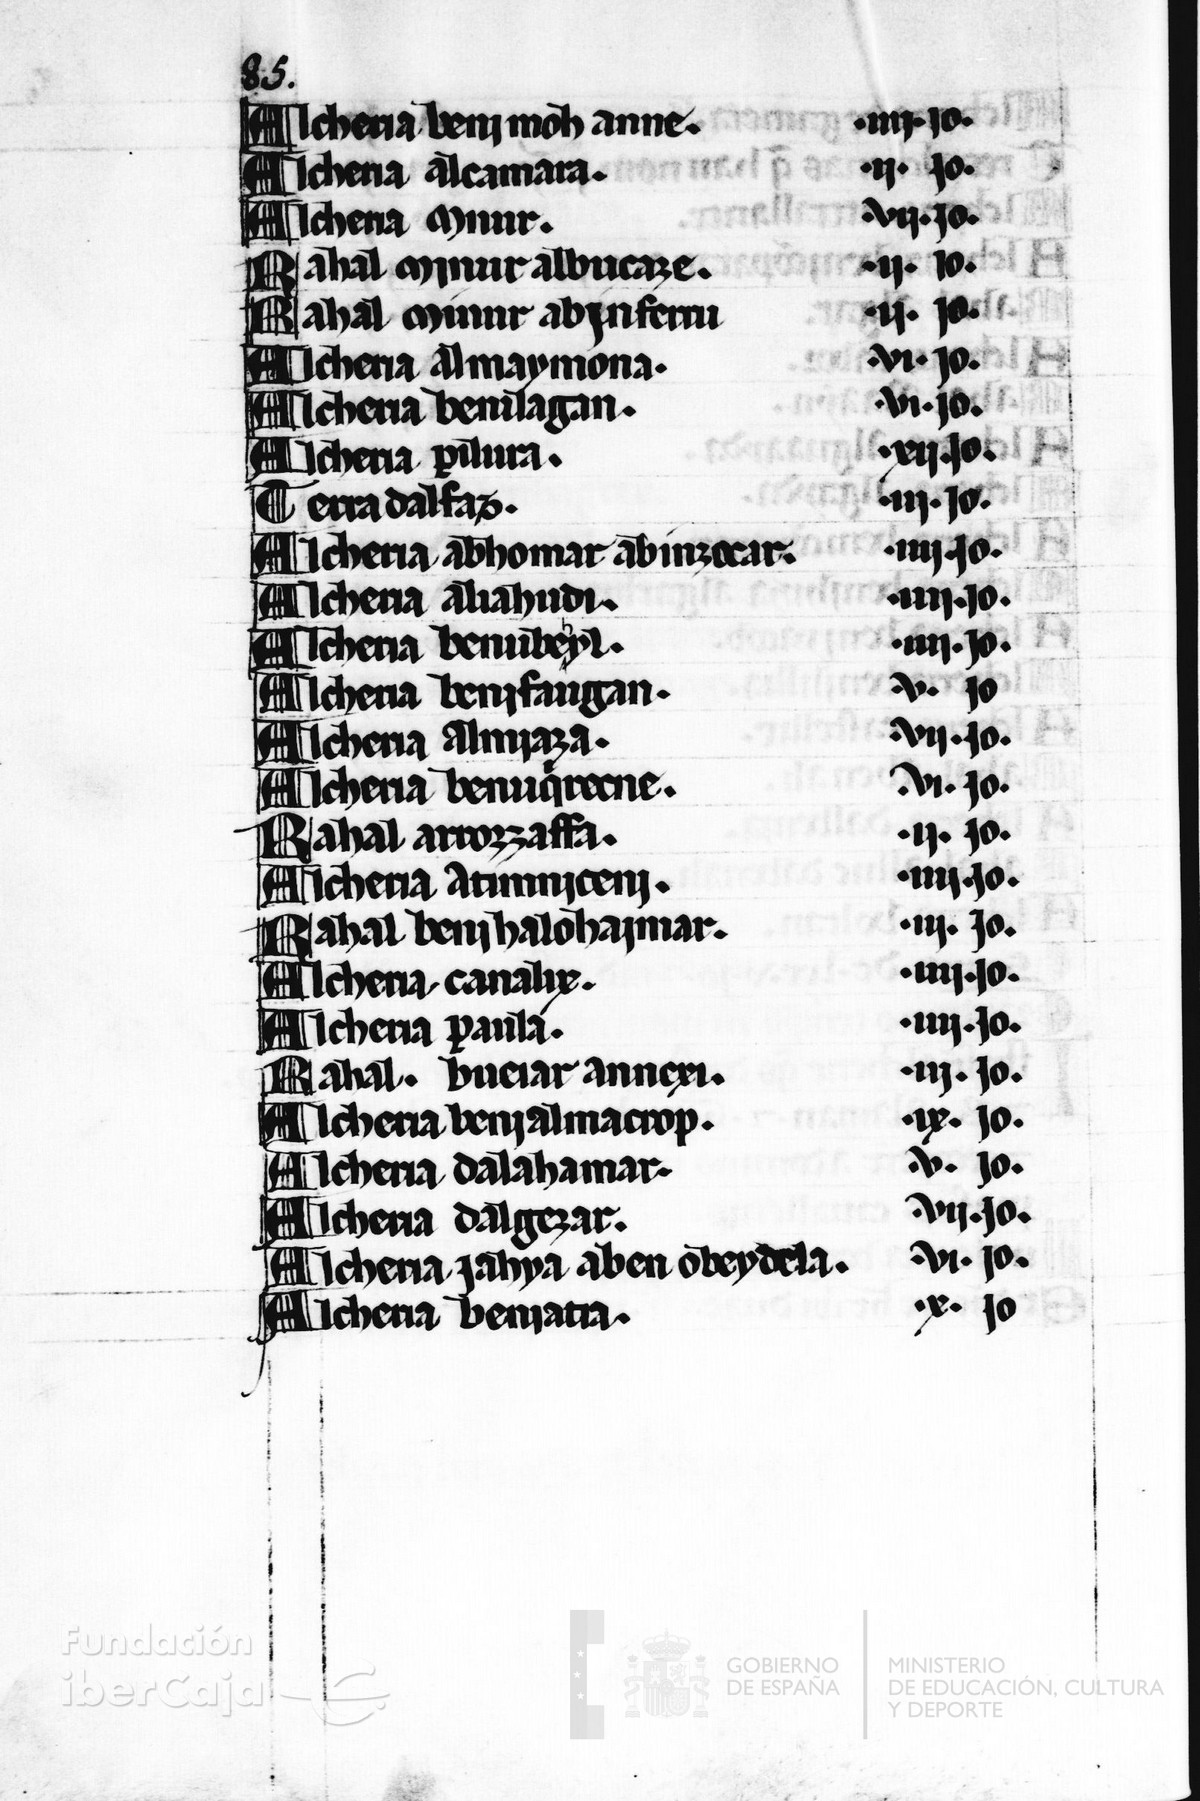 85.
Alcheria benj moh anne. .iiij. jo.
Alcheria alcamara. .ij. jo.
Alcheria Minur. .vij. jo.
Rahal Mjnur albucaze. .ij. jo.
Rahal Minur abjnferru .ij. jo.
Alcheria almaymona. .vi. jo.
Alcheria benilagan. .vi. jo.
Alcheria pilura. .xij. jo.
Terra dalfaz. .iij. jo.
Alcheria abhomar abinzocar. .iiij. jo.
Alcheria aliahudi. .iiij. jo.
Alcheria benibeyl. .iiij. jo.
Alcheria benjfaugan. .v. jo
Alcheria Almjaza. .vij. jo.
Alcheria .vi. jo.
Rahal arrozzaffa. .ij. jo.
Alcheria .iiij. jo.
Rahal benjhalohajmar. .iij. jo.
Alcheria canalix. .iiij. jo.
Alcheria paula. .iiij. jo.
Rahal. buciar annexi. .iij. jo.
Alcheria benjalmacrop. .ix. jo.
Alcheria dalahamar. .v. jo.
Alcheria dalgezar. .vij. jo.
Alcheria jahya aben obeydela. .vi. jo.
Alcheria benjatra. .x. jo
Fundación
iberCaja
GOBIERNO
DE ESPAÑA
MINISTERIO
DE EDUCACIÓN, CULTURA
Y DEPORTE